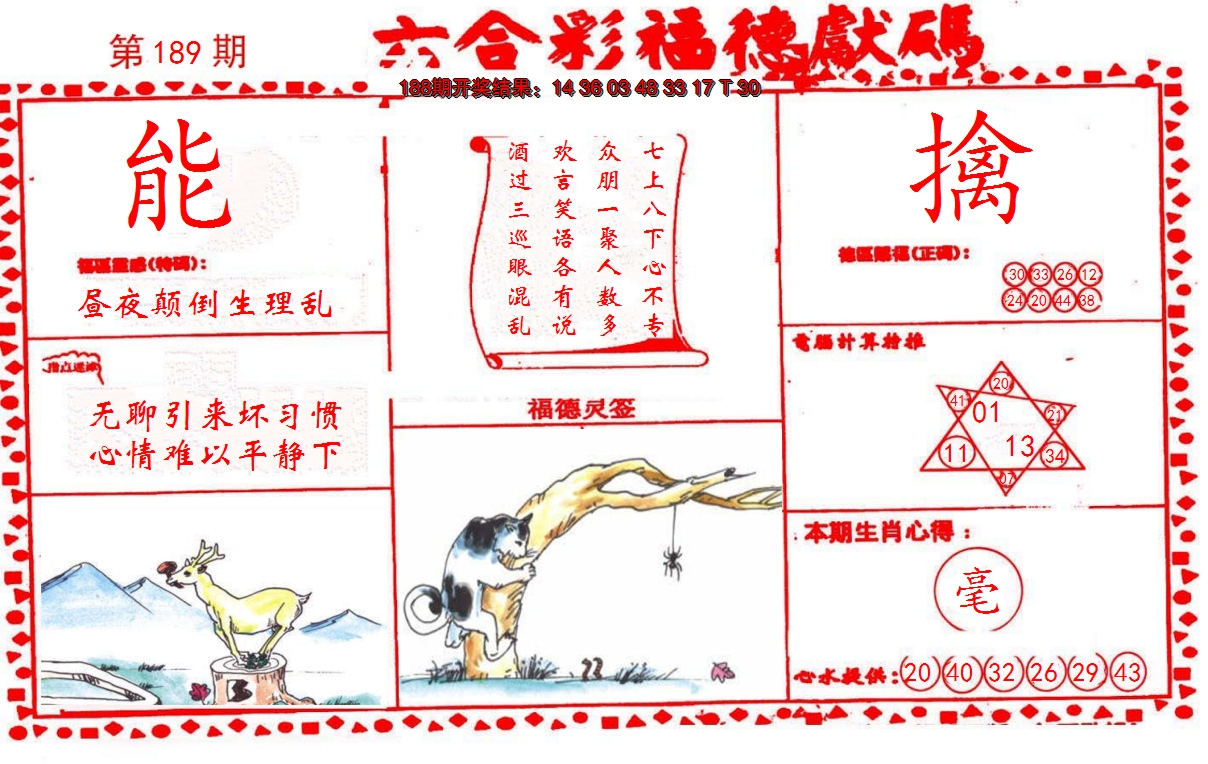 第189期
六合彩福德獻碼
188期开奖结果：14 36 03 48 33 17 T 30
能
福區靈感(特碼)：
昼夜颠倒生理乱
指点迷津
无聊引来坏习惯
心情难以平静下
七上八下心不专
众朋一聚人数多
欢言笑语各有说
酒过三巡眼混乱
福德灵签
擒
德區賜福(正碼)：
30 33 26 12
24 20 44 38
電腦計算推
20
41 01 21
11 13 34
07
本期生肖心得：
毫
心水提供：20 40 32 26 29 43